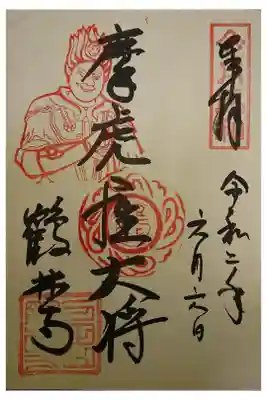 奉拝
令和二年
六月六日
摩虎羅大将
鶴林寺